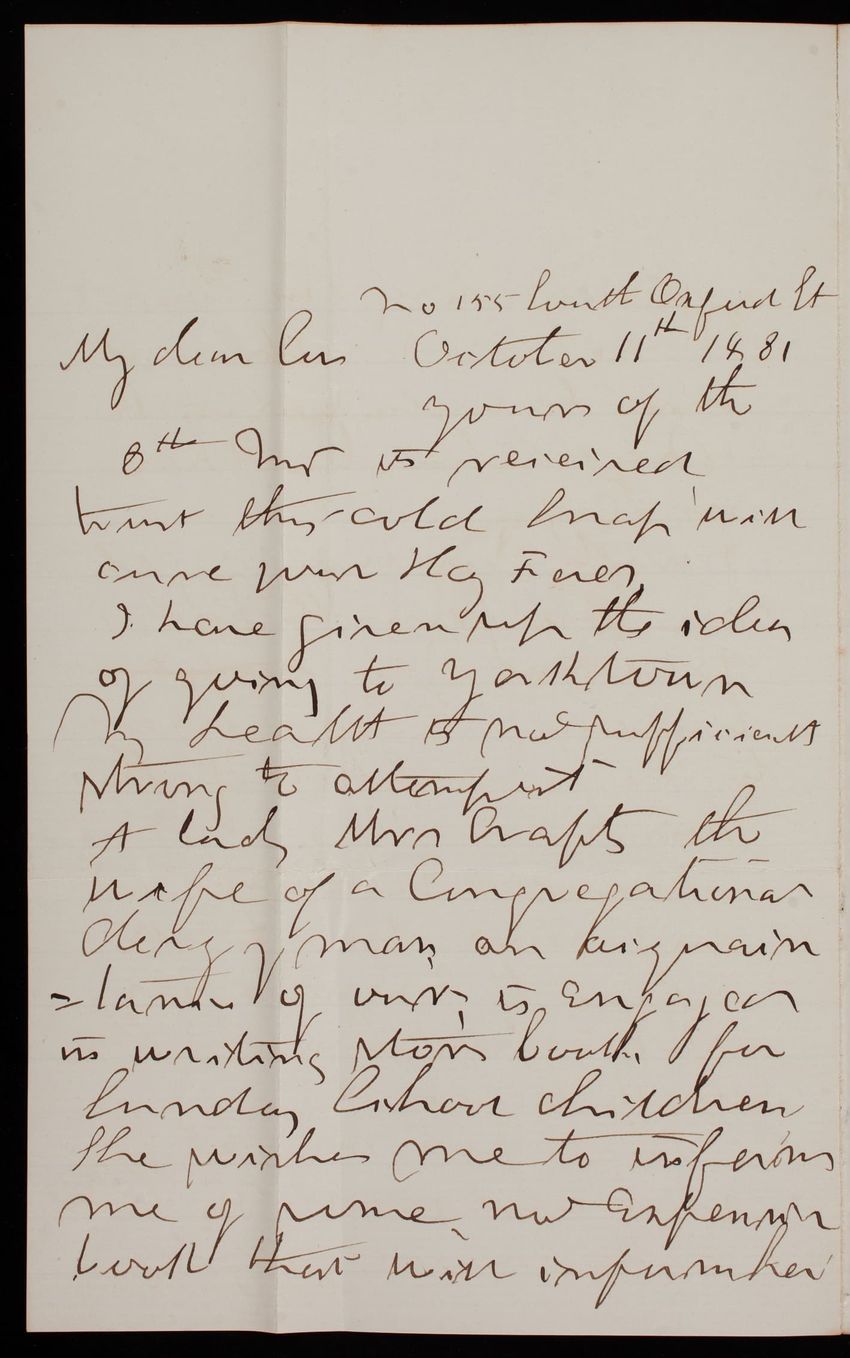 No 155 South Oxford St
My dear Cas October 11th 1881
yours of the
8th Inst is received
trust this cold snap will
cure your Hay Fever,
I have given up the idea
of going to Yorktown
My health is not sufficient
strong to attempt it
A lady Mrs Crafts the
wife of a Congregational
Clergyman, an acquain
=tance of ours, is engaged
in writing story books for
Sunday School children
She wishes me to inform
me of some not Expensive
book that will inform her